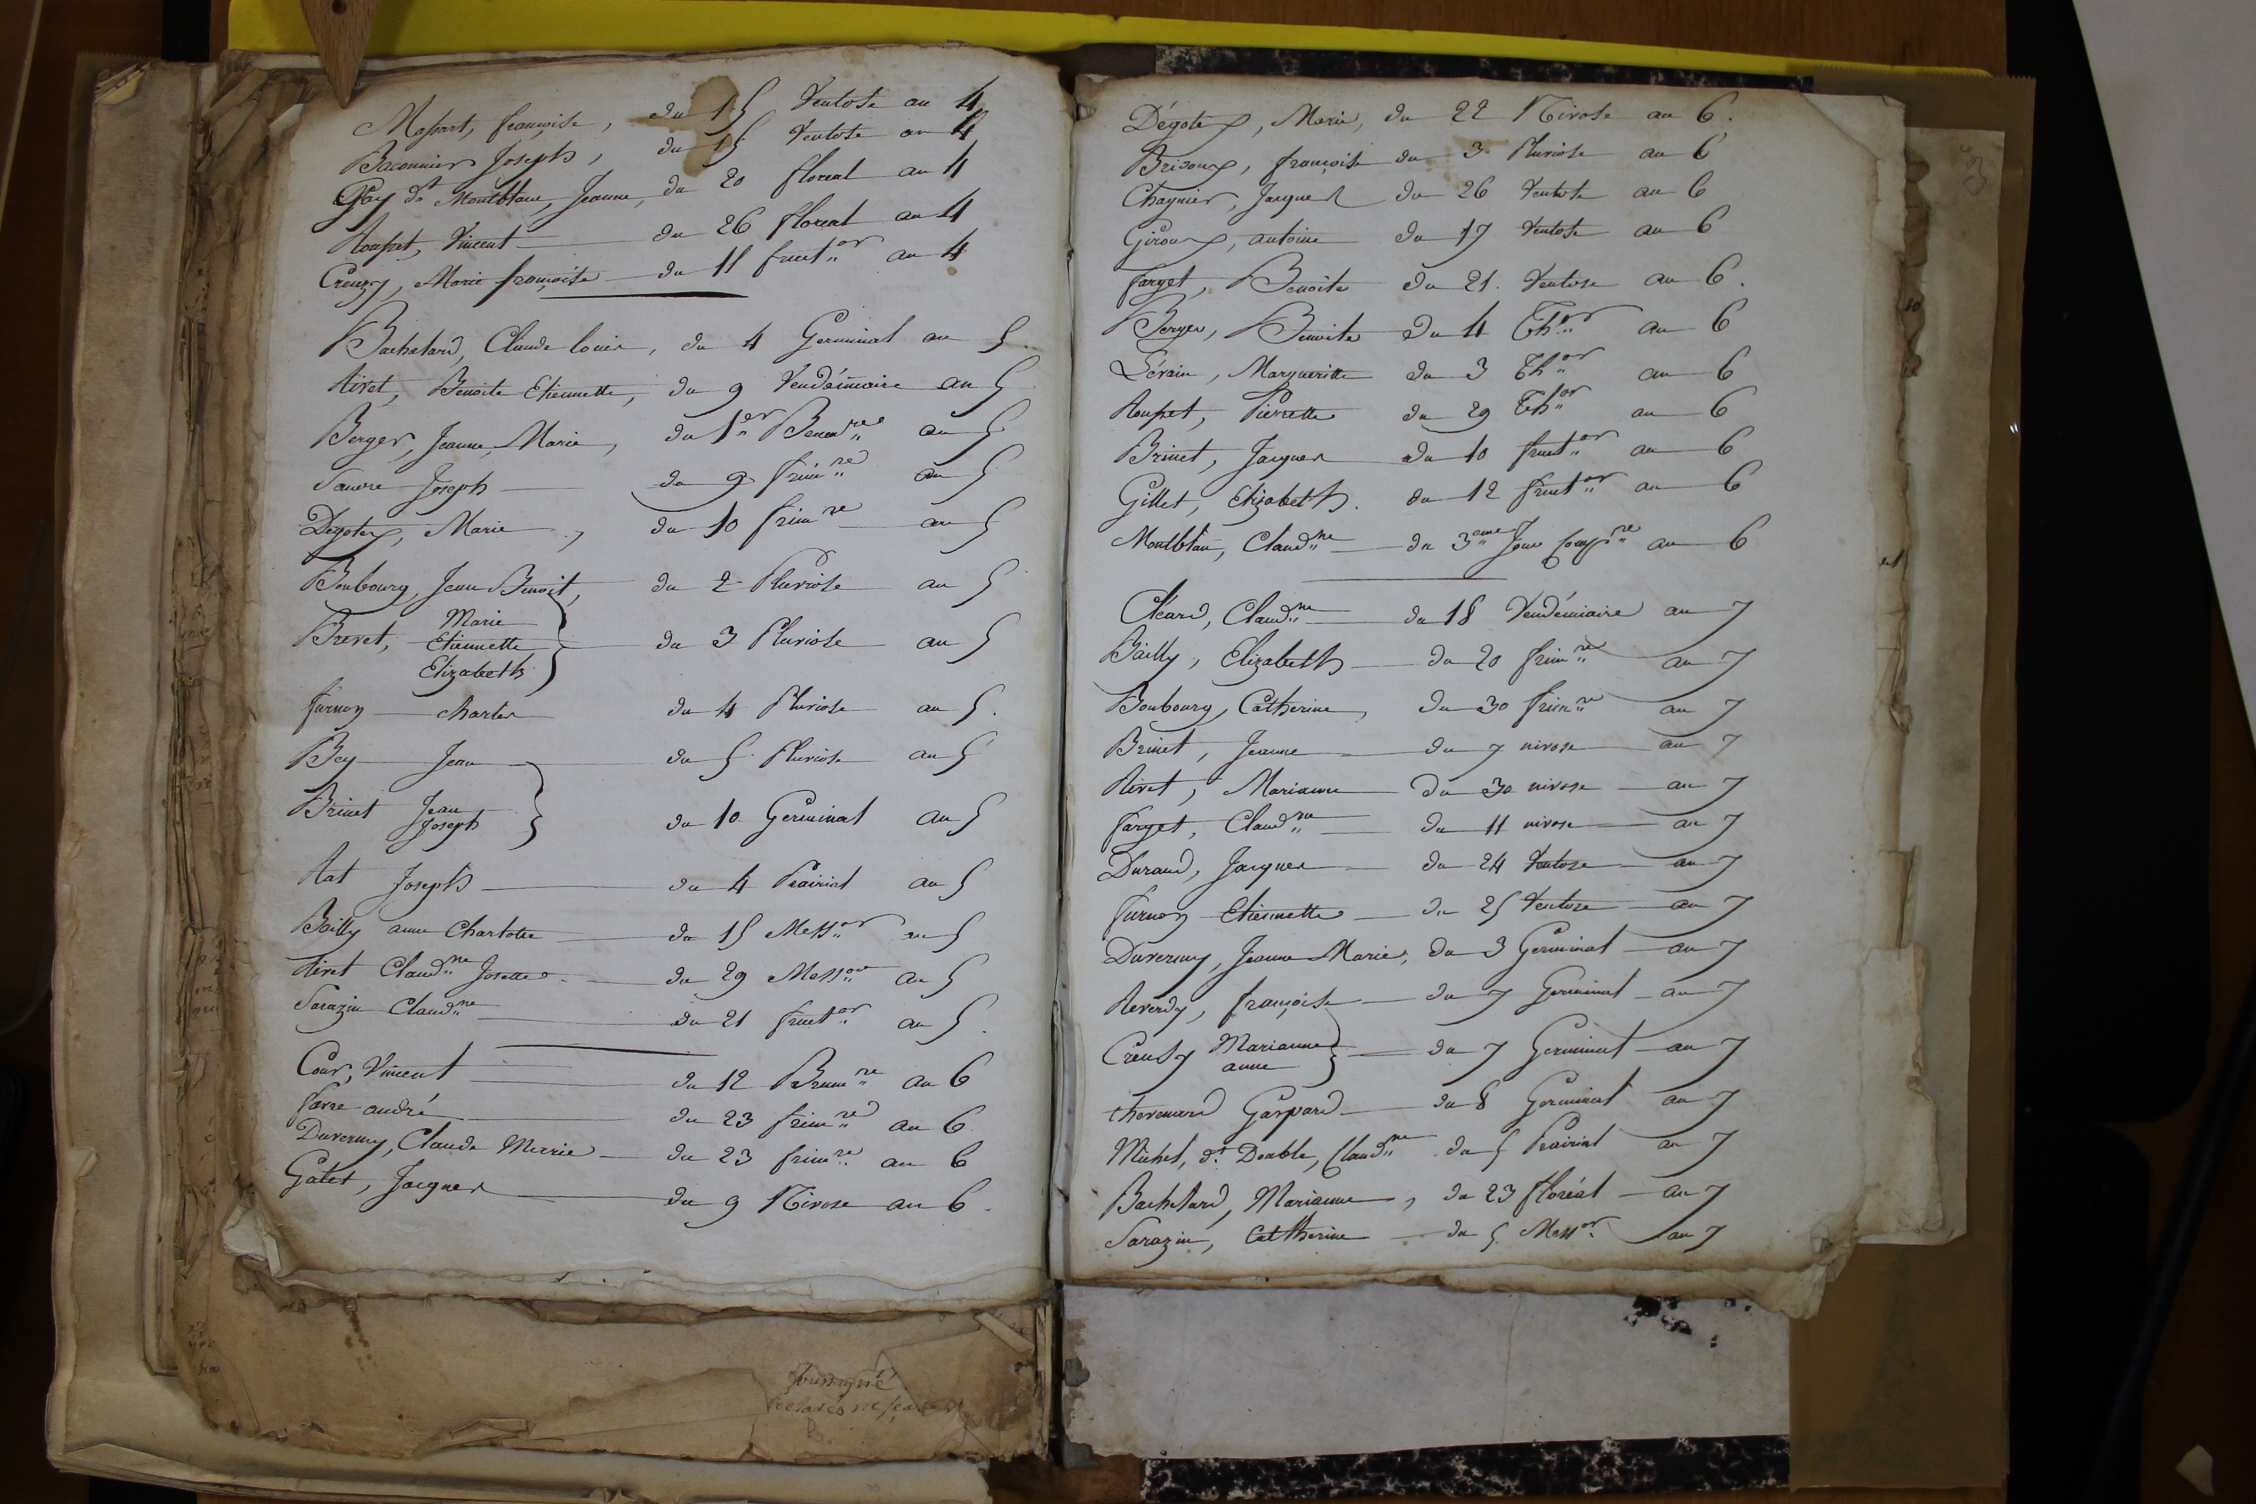 françoise, du 15 Ventose an 4
Baconnier Joseph, du 15 Ventose an 4
Gay dt Montblanc, Jeanne, du 20 floreal an 4
Roupet, Vincent du 26 floreal an 4
Creuzy, Marie françoise du 11 fructor an 4
Bachelard, Claude Louis, du 4 Germinal an 5
Rivet, Benoite Etiennette, du 9 Vendémiaire an 5
Berger, Jeanne Marie, du 1er an 5
Joseph du 9 frimre an 5
Degotex, Marie, du 10 frimre an 5
Boubourg, Jean Benoit, du 2 Pluviose an 5
Marie
Brevet, Etiennette du 3 Pluviose an 5
Elizabeth
Furnon Charles du 4 Pluviose an 5.
Bey Jean du 5 Pluviose an 5
Brinet Jean
Joseph du 10 Germinal an 5
Rat Joseph du 4 Prairial an 5
Bailly anne Charlotte du 15 Messor an 5
Rivet Claudne Josette du 29 Messor an 5
Sarazin Claudne du 21 fructor an 5.
Cour, Vincent du 12 Brumre an 6
favre andré du 23 frimre an 6
Duvernay, Claude Marie du 23 frimre an 6
Gatet, Jacques du 9 Nivose an 6.
Dégotex, Marie, du 22 Nivose an 6.
Brisoux, françoise du 3 Pluviose an 6
Chagnier, Jacques du 26 Ventose an 6
Giroux, antoine du 17 Ventose an 6
farget, Benoite du 21. Ventose an 6.
Berger, Benoite du 4 Thor an 6
Marguerite du 3 Thor an 6
Roupet, Pierrette du 29 Thor an 6
Brinet, Jacques du 10 fructor an 6
Gillet, Elizabeth. du 12 fructor an 6
Montblan, Claudne du 3eme Jour Compre an 6
Cléard, Claudne du 18 Vendémiaire an 7
Bailly, Elizabeth du 20 frimre an 7
Boubourg, Catherine, du 30 frimre an 7
Brinet, Jeanne du 7 nivose an 7
Rivet, Marianne du 30 nivose an 7
farget, Claudne du 11 nivose an 7
Durand, Jacques du 24 Ventose an 7
furnon Etiennette du 25 Ventose an 7
Duvernay, Jeanne Marie, du 3 Germinal an 7
Reverdy, françoise du 7 Germinal an 7
Creusy Marianne du 7 Germinal an 7
anne
thevenard Gaspard du 8 Germinal an 7
Michel, dt Double, Claudne du 5 Prairial an 7
Bachelard, Marianne, du 23 floréal an 7
Sarazin, Catherine du 5 Messor an 7